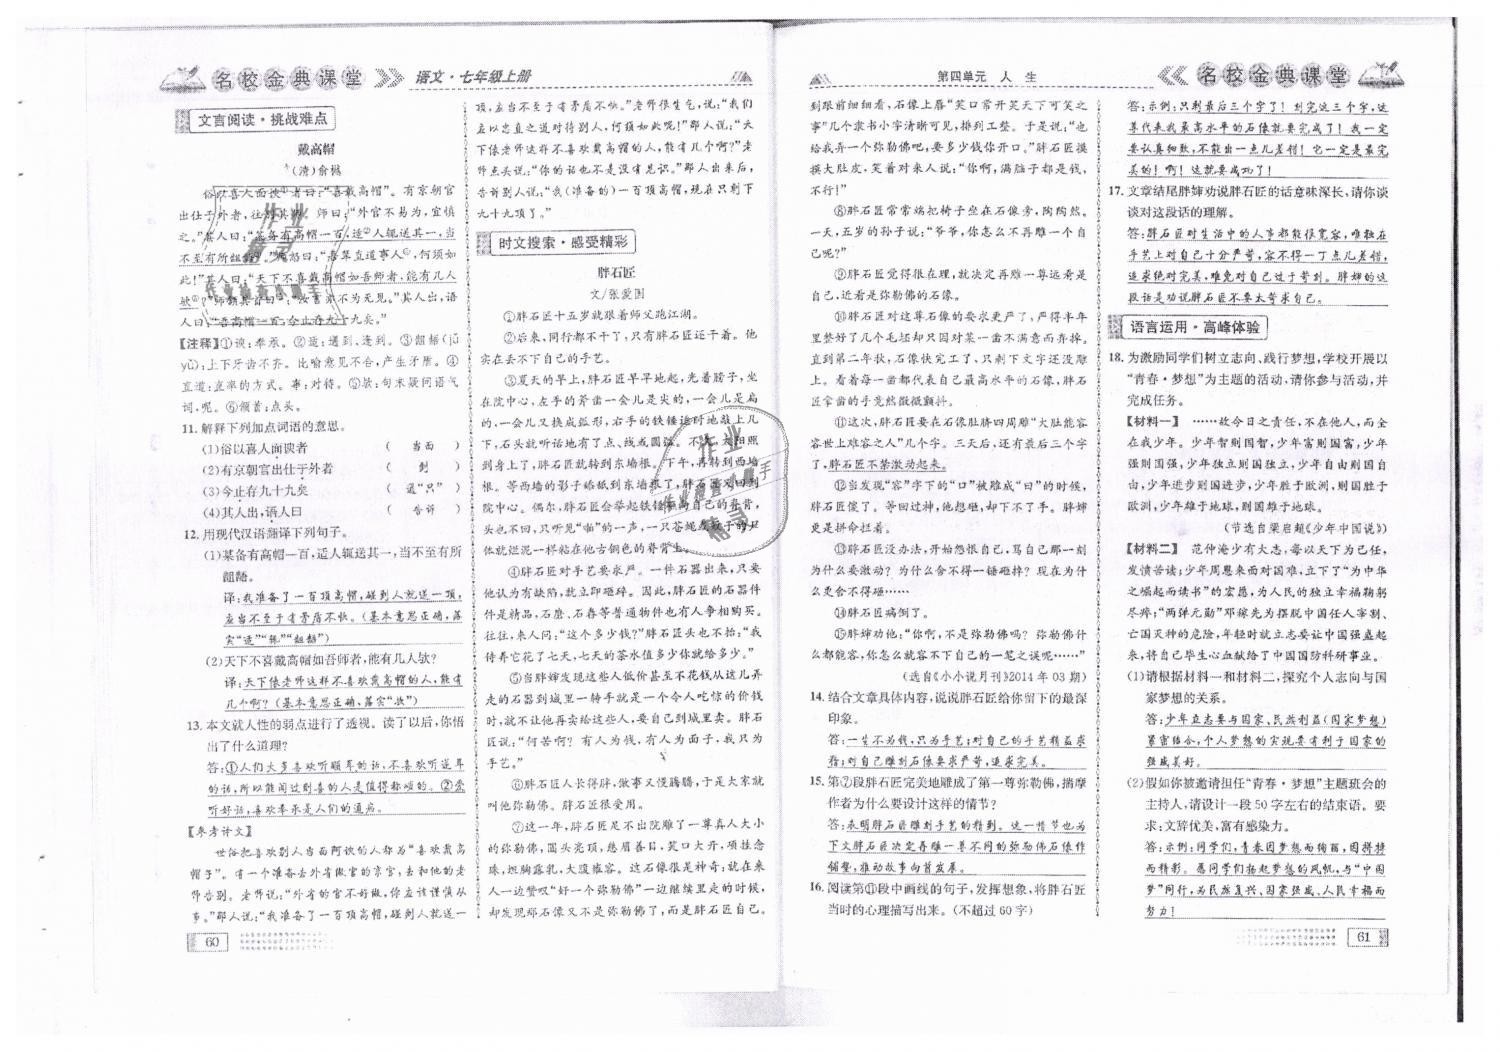 名校金典课堂 语文·七年级上册
文言阅读·挑战难点
戴高帽
(清)俞樾
俗以喜人面谀①者曰：“喜戴高帽。”有京朝官
出仕于外者，往
师曰：“外官不易为，宜慎
之。”其人曰：“某备有高帽一百，适②人辄送其一，当
不至有所龃龉③。”
直道事人④，何须如
此！”某人曰：“天下不喜戴高帽如吾师者，能有几人
欤⑤？”师颔其首⑥曰：“汝言亦不为无见。”其人出，语
人曰：“吾高帽一百，今止存九十九矣。”
【注释】①谀：奉承。②适：遇到、逢到。③龃龉(jǔ
yǔ)：上下牙齿不齐。比喻意见不合，产生矛盾。④
直道：直率的方式。事：对待。⑤欤：句末疑问语气
词，呢。⑥颔首：点头。
11. 解释下列加点词语的意思。
(1)俗以喜人面谀者 ( 当面 )
(2)有京朝官出仕于外者 ( 到 )
(3)今止存九十九矣 ( 通“只” )
(4)其人出，语人曰 ( 告诉 )
12. 用现代汉语翻译下列句子。
(1)某备有高帽一百，适人辄送其一，当不至有所
龃龉。
译：我准备了一百顶高帽，碰到人就送一顶，
应当不至于有矛盾不快。(基本意思正确，落
实“适”“辄”“龃龉”)
(2)天下不喜戴高帽如吾师者，能有几人欤？
译：天下像老师这样不喜欢戴高帽的人，能有
几个啊？(基本意思正确，落实“欤”)
13. 本文就人性的弱点进行了透视。读了以后，你悟
出了什么道理？
答：①人们大多喜欢听顺耳的话，不喜欢听逆耳
的话，所以能闻过则喜的人是值得称颂的。②爱
听好话，喜欢奉承是人们的通病。
【参考译文】
世俗把喜欢别人当面阿谀的人称为“喜欢戴高
帽子”。有一个准备去外省做官的京官，去和他的老
师告别。老师说：“外省的官不好做，你应该谨慎从
事。”那人说：“我准备了一百顶高帽，碰到人就送一
60
顶，应当不至于有矛盾不快。”老师很生气，说：“我们
应以忠直之道对待别人，何须如此呢！”那人说：“天
下像老师这样不喜欢戴高帽的人，能有几个啊？”老
师点头说：“你的话也不是没有见识。”那人出来后，
告诉别人说：“我(准备的)一百顶高帽，现在只剩下
九十九顶了。”
时文搜索·感受精彩
胖石匠
文/张爱国
①胖石匠十五岁就跟着师父跑江湖。
②后来，同行都不干了，只有胖石匠还干着。他
实在丢不下自己的手艺。
③夏天的早上，胖石匠早早地起，光着膀子，坐
在院中心，左手的凿子一会儿是尖的，一会儿是扁
的，一会儿又换成弧形，右手的铁锤迎时敲上几
下，石头就听话地有了点、线或圆弧。不久，太阳照
到西墙根，胖石匠就转到东墙根。下午，再转到西墙
根。等西墙的影子缩到东墙根了，胖石匠又回到
院中心。偶尔，胖石匠会举起铁锤
自己的脊背，
头也不回，只听见“啪”的一声，一只苍蝇
体就烂泥一样粘在他古铜色的脊背上。
④胖石匠对手艺要求严。一件石器出来，只要
他认为有缺陷，就立即砸碎。因为胖石匠的石器件
件是精品，石磨、石舂等普通物件也有人争相购买。
往往，来人问：“这个多少钱？”胖石匠头也不回：“我
侍弄它花了七天，七天的茶水值多少你就给多少。”
⑤当胖婶发现这些人低价甚至不花钱从这儿弄
走的石器到城里一转手就是一个令人吃惊的价钱
时，就不让他再卖给这些人，要自己到城里卖。胖石
匠说：“何苦啊？有人为钱，有人为面子，我只为
手艺。”
⑥胖石匠人长得胖，做事又慢腾腾，于是大家就
叫他弥勒佛。胖石匠很受用。
⑦这一年，胖石匠足不出院雕了一尊真人大小
的弥勒佛，圆头亮顶，慈眉善眼，笑口大开，项挂念
珠，坦胸露乳，大腹雍容。这石像很是神奇：就在来
人一边赞叹“好一个弥勒佛”一边继续里走的时候，
却发现那石像又不是弥勒佛了，而是胖石匠自己。
第四单元 人 生 名校金典课堂
到跟前细细看，石像上唇“笑口常开笑天下可笑之
事”几个隶书小字清晰可见，排列工整。于是说：“也
给我弄一个弥勒佛吧，要多少钱你开口。”胖石匠摸
摸大肚皮，笑着对来人说：“你啊，满脑子都是钱，
不行！”
⑧胖石匠常常端把椅子坐在石像旁，陶陶然。
一天，五岁的孙子说：“爷爷，你怎么不再雕一个自
己？”
⑨胖石匠觉得很在理，就决定再雕一尊远看是
自己，近看是弥勒佛的石像。
⑩胖石匠对这尊石像的要求更严了，严得半年
里整好了几个毛坯却只因对某一凿不满意而弃掉。
直到第二年秋，石像快完工了，只剩下文字还没雕
上。看着每一凿都代表自己最高水平的石像，胖石
匠掌凿的手竟然微微颤抖。
⑪这次，胖石匠要在肚脐四周雕“大肚能容
容世上难容之人”几个字。三天后，还有最后三个字
了，胖石匠不禁激动起来。
⑫当发现“容”字下的“口”被雕成“日”的时候，
胖石匠傻了。等回过神，他想砸掉，却下不了手。胖婶
更是拼命拦着。
⑬胖石匠没办法，开始恨自己，骂自己那一刻
为什么要激动？为什么舍不得一锤砸掉？现在为什
么更舍不得……
⑭胖石匠病倒了。
⑮胖婶劝他：“你啊，不是弥勒佛吗？弥勒佛什
么都能容，你怎么就容不下自己的一笔之误呢……”
(选自《小小说月刊》2014 年 03 期)
14. 结合文章具体内容，说说胖石匠给你留下的最深
印象。
答：一生不为钱，只为手艺；对自己的手艺精益求
精；对自己雕刻作品要求严格，追求完美。
15. 第⑦段胖石匠完美地雕成了第一尊弥勒佛，揣摩
作者为什么要设计这样的情节？
答：表明胖石匠雕刻手艺的精到。这一情节也为
下文胖石匠决定再雕一尊不同的弥勒佛石像作
铺垫，推动故事向前发展。
16. 阅读第⑪段中画线的句子，发挥想象，将胖石匠
当时的心理描写出来。(不超过 60 字)
答：示例：只剩最后三个字了！刻完这三个字，这
尊代表我最高水平的石像就要完成了！我一定
要认真细致，不能出一点儿差错！它一定是最完
美的！啊！这就要成功了！
17. 文章结尾胖婶劝说胖石匠的话意味深长，请你谈
谈对这段话的理解。
答：胖石匠对生活中的人事都能很宽容，唯独在
手艺上对自己十分严苛，容不得一丁点儿差错，
追求绝对完美，难免对自己过于苛刻。胖婶的这
段话是劝说胖石匠不要太苛求自己。
语言运用·高峰体验
18. 为激励同学们树立志向、践行梦想，学校开展以
“青春·梦想”为主题的活动，请你参与活动，并
完成任务。
【材料一】 ……故今日之责任，不在他人，而
全在我少年。少年智则国智，少年富则国富；少年
强则国强，少年独立则国独立，少年自由则国自
由，少年进步则国进步，少年胜于欧洲，则国胜于
欧洲，少年雄于地球，则国雄于地球。
(节选自梁启超《少年中国说》)
【材料二】 范仲淹少有大志，每以天下为己任，
发愤苦读；少年周恩来面对国难，立下了“为中华
之崛起而读书”的宏愿，为人民的独立幸福鞠躬
尽瘁；“两弹元勋”邓稼先为摆脱中国任人宰割、
亡国灭种的危险，年轻时就立志要让中国强盛起
来，将自己毕生心血献给了中国国防科研事业。
(1)请根据材料一和材料二，探究个人志向与国
家梦想的关系。
答：少年立志要与国家、民族利益(国家梦想)
紧密结合，个人梦想的实现要有利于国家的
强盛美好。
(2)假如你被邀请担任“青春·梦想”主题班会的
主持人，请设计一段 50 字左右的结束语。要
求：文辞优美，富有感染力。
答：示例：同学们，青春因梦想而绚丽，因拼搏
而精彩。愿同学们扬起梦想的风帆，与“中国
梦”同行，为民族复兴、国家强盛、人民幸福而
努力！
61